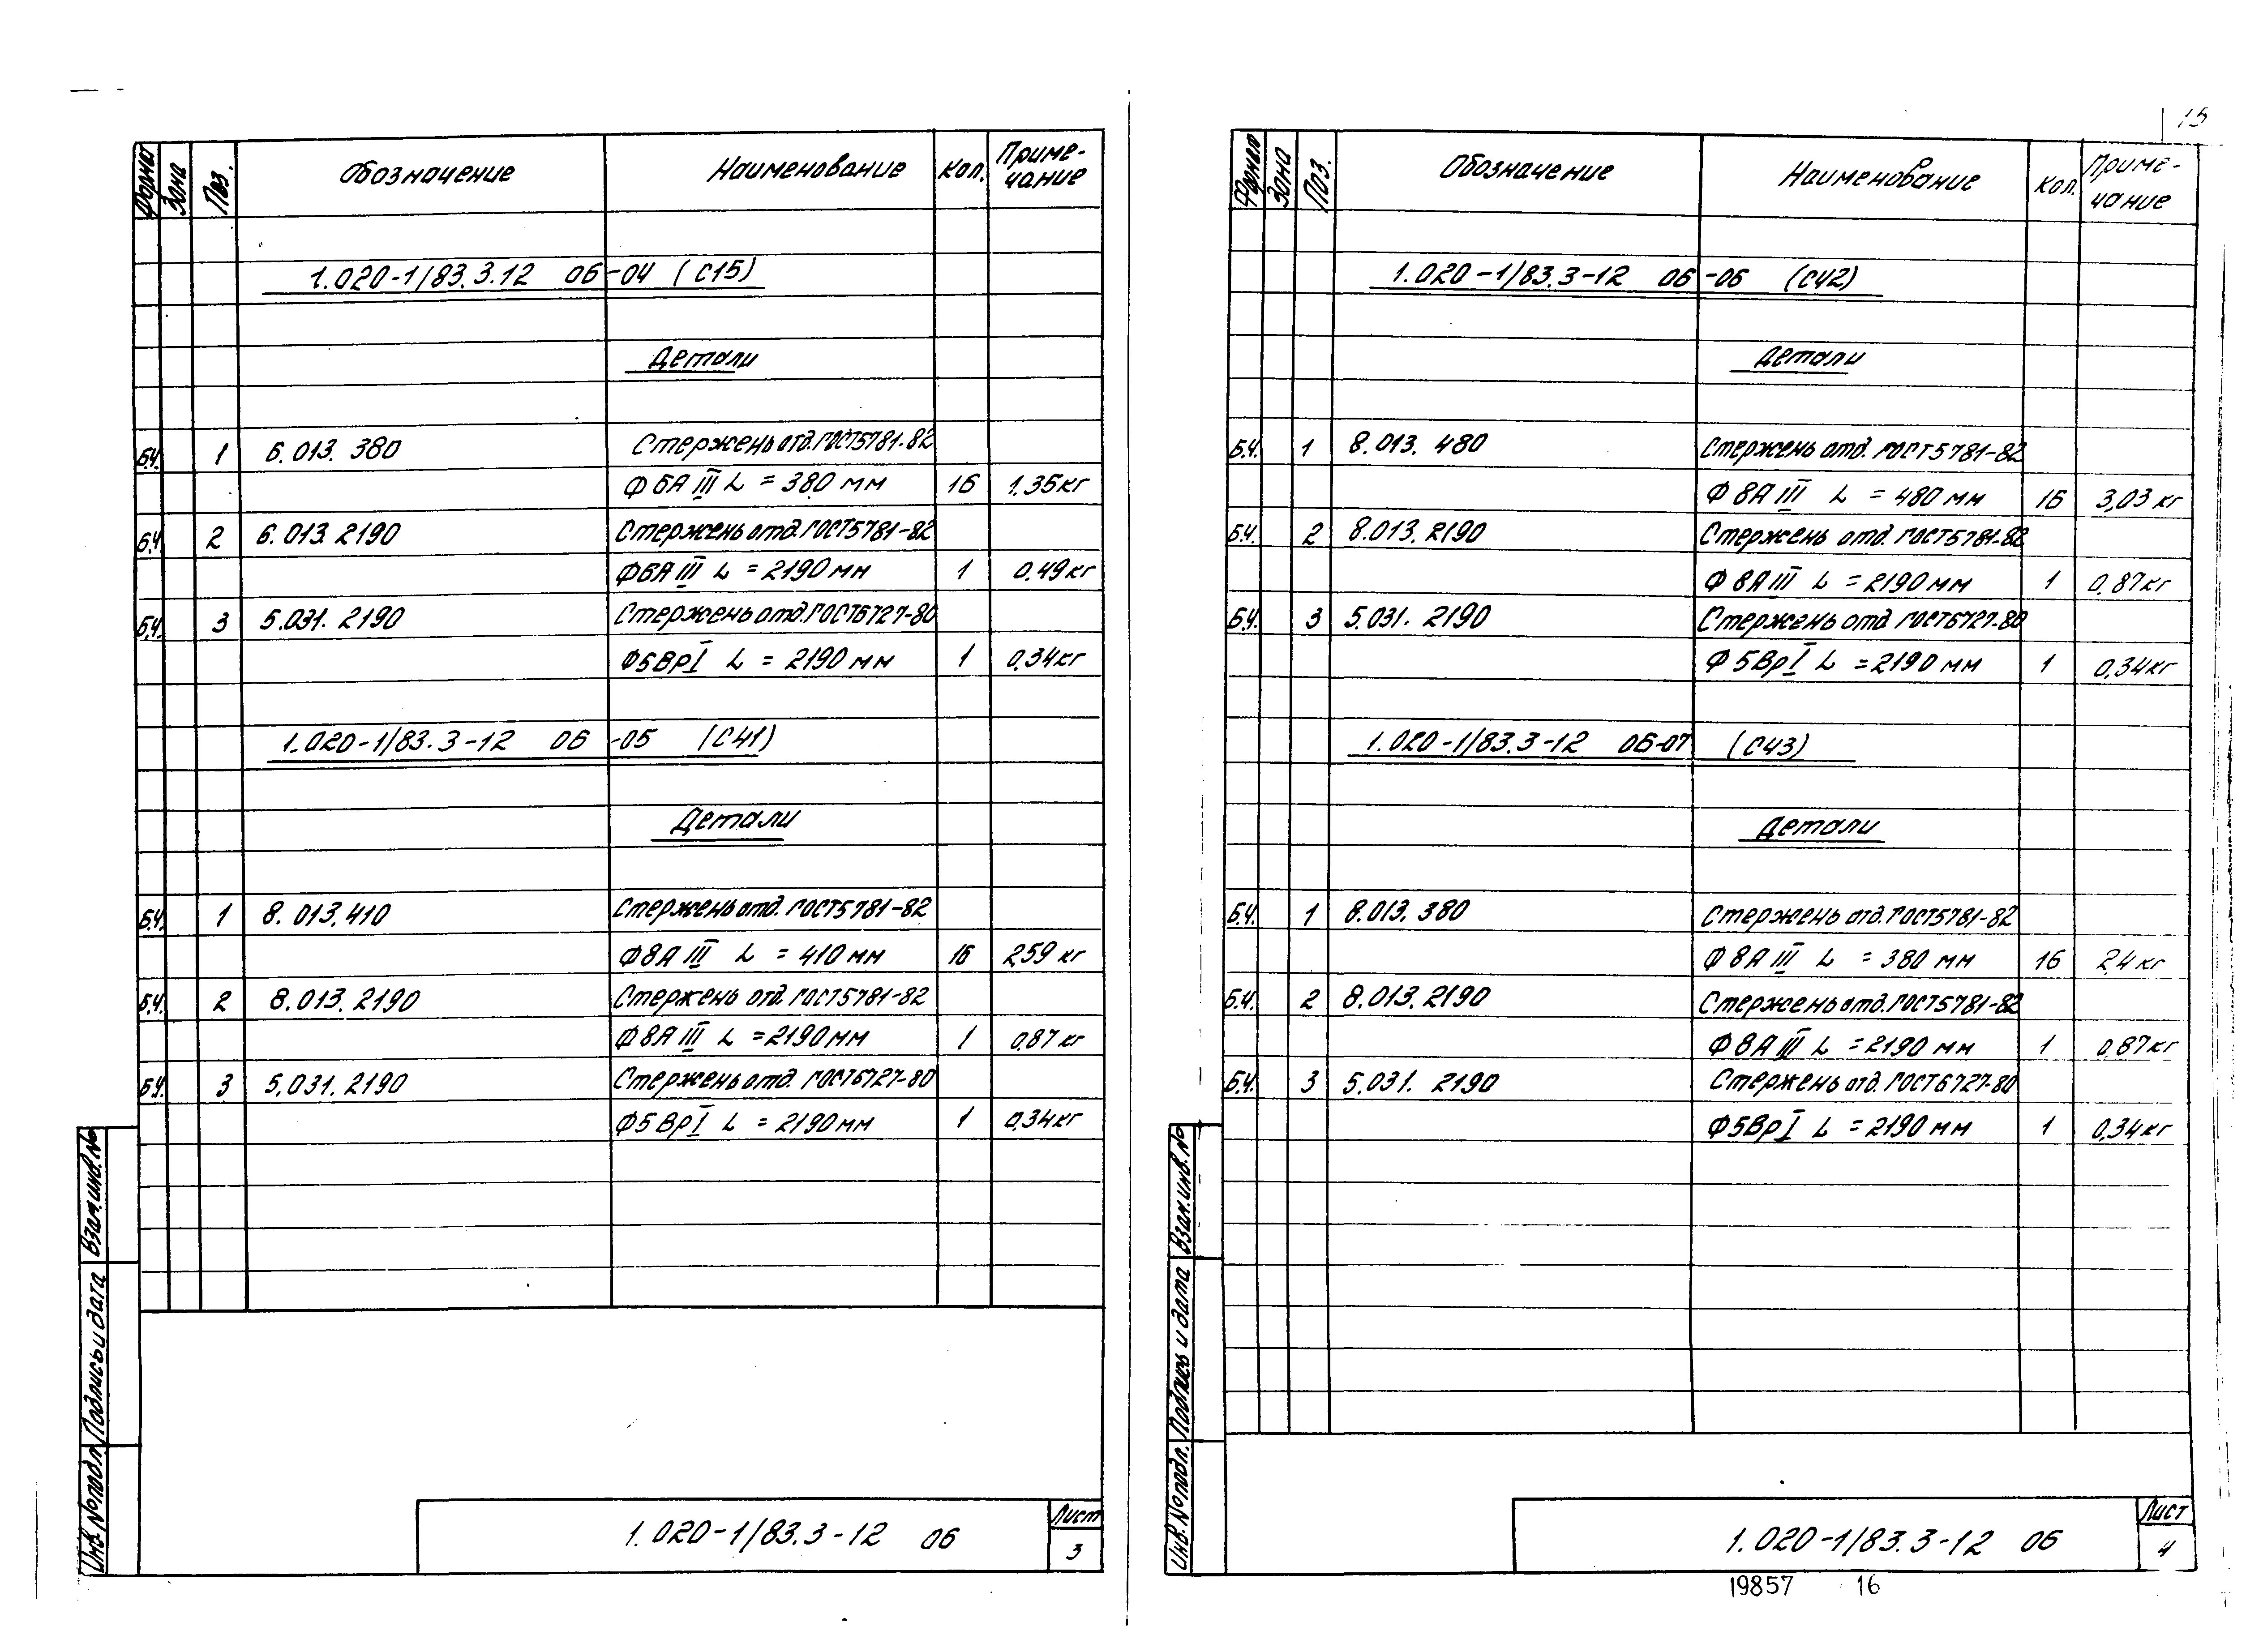 Формат Зона Поз. Обозначение Наименование Кол. Приме-
чание
1.020-1/83.3.12 06-04 (С15)
Детали
Б.Ч. 1 6.013.380 Стержень отд. ГОСТ5781-82
Ф6АIII L = 380 мм 16 1.35кг
Б.Ч. 2 6.013.2190 Стержень отд. ГОСТ5781-82
Ф6АIII L = 2190 мм 1 0,49кг
Б.Ч. 3 5.031.2190 Стержень отд. ГОСТ6727-80
Ф5ВрI L = 2190 мм 1 0,34кг
1.020-1/83.3-12 06-05 (С41)
Детали
Б.Ч. 1 8.013.410 Стержень отд. ГОСТ5781-82
Ф8АIII L = 410 мм 16 2,59 кг
Б.Ч. 2 8.013.2190 Стержень отд. ГОСТ5781-82
Ф8АIII L = 2190 мм 1 0,87 кг
Б.Ч. 3 5.031.2190 Стержень отд. ГОСТ6727-80
Ф5ВрI L = 2190 мм 1 0,34кг
Взам.инв.№
Подпись и дата
Инв.№подл.
1.020-1/83.3-12 06
Лист
3
15
Формат Зона Поз. Обозначение Наименование Кол. Приме-
чание
1.020-1/83.3-12 06-06 (С42)
Детали
Б.Ч. 1 8.013.480 Стержень отд. ГОСТ5781-82
Ф8АIII L = 480 мм 16 3,03 кг
Б.Ч. 2 8.013.2190 Стержень отд. ГОСТ5781-82
Ф8АIII L = 2190 мм 1 0,87кг
Б.Ч. 3 5.031.2190 Стержень отд ГОСТ6727-80
Ф5ВрI L = 2190 мм 1 0,34кг
1.020-1/83.3-12 06-07 (С43)
Детали
Б.Ч. 1 8.013.380 Стержень отд. ГОСТ5781-82
Ф8АIII L = 380 мм 16 2,4 кг
Б.Ч. 2 8.013.2190 Стержень отд. ГОСТ5781-82
Ф8АIII L = 2190 мм 1 0,87кг
Б.Ч. 3 5.031.2190 Стержень отд. ГОСТ6727-80
Ф5ВрI L = 2190 мм 1 0,34кг
Взам.инв.№
Подпись и дата
Инв.№подл.
1.020-1/83.3-12 06
Лист
4
19857 16